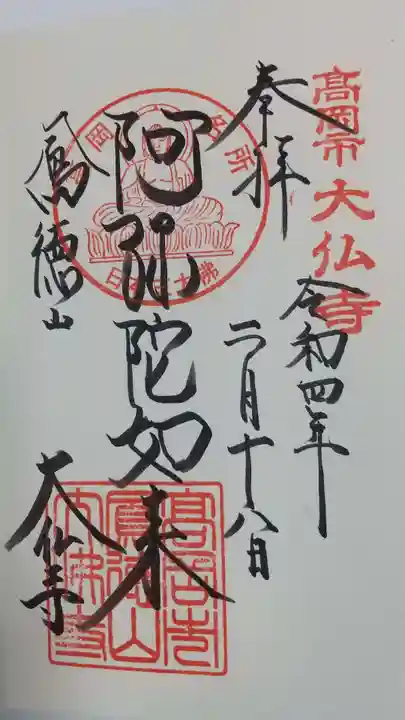 高岡市 大仏寺
奉拝
令和四年
二月十八日
阿弥陀如来
鳳徳山
大仏寺
高岡市
鳳徳山
大佛寺